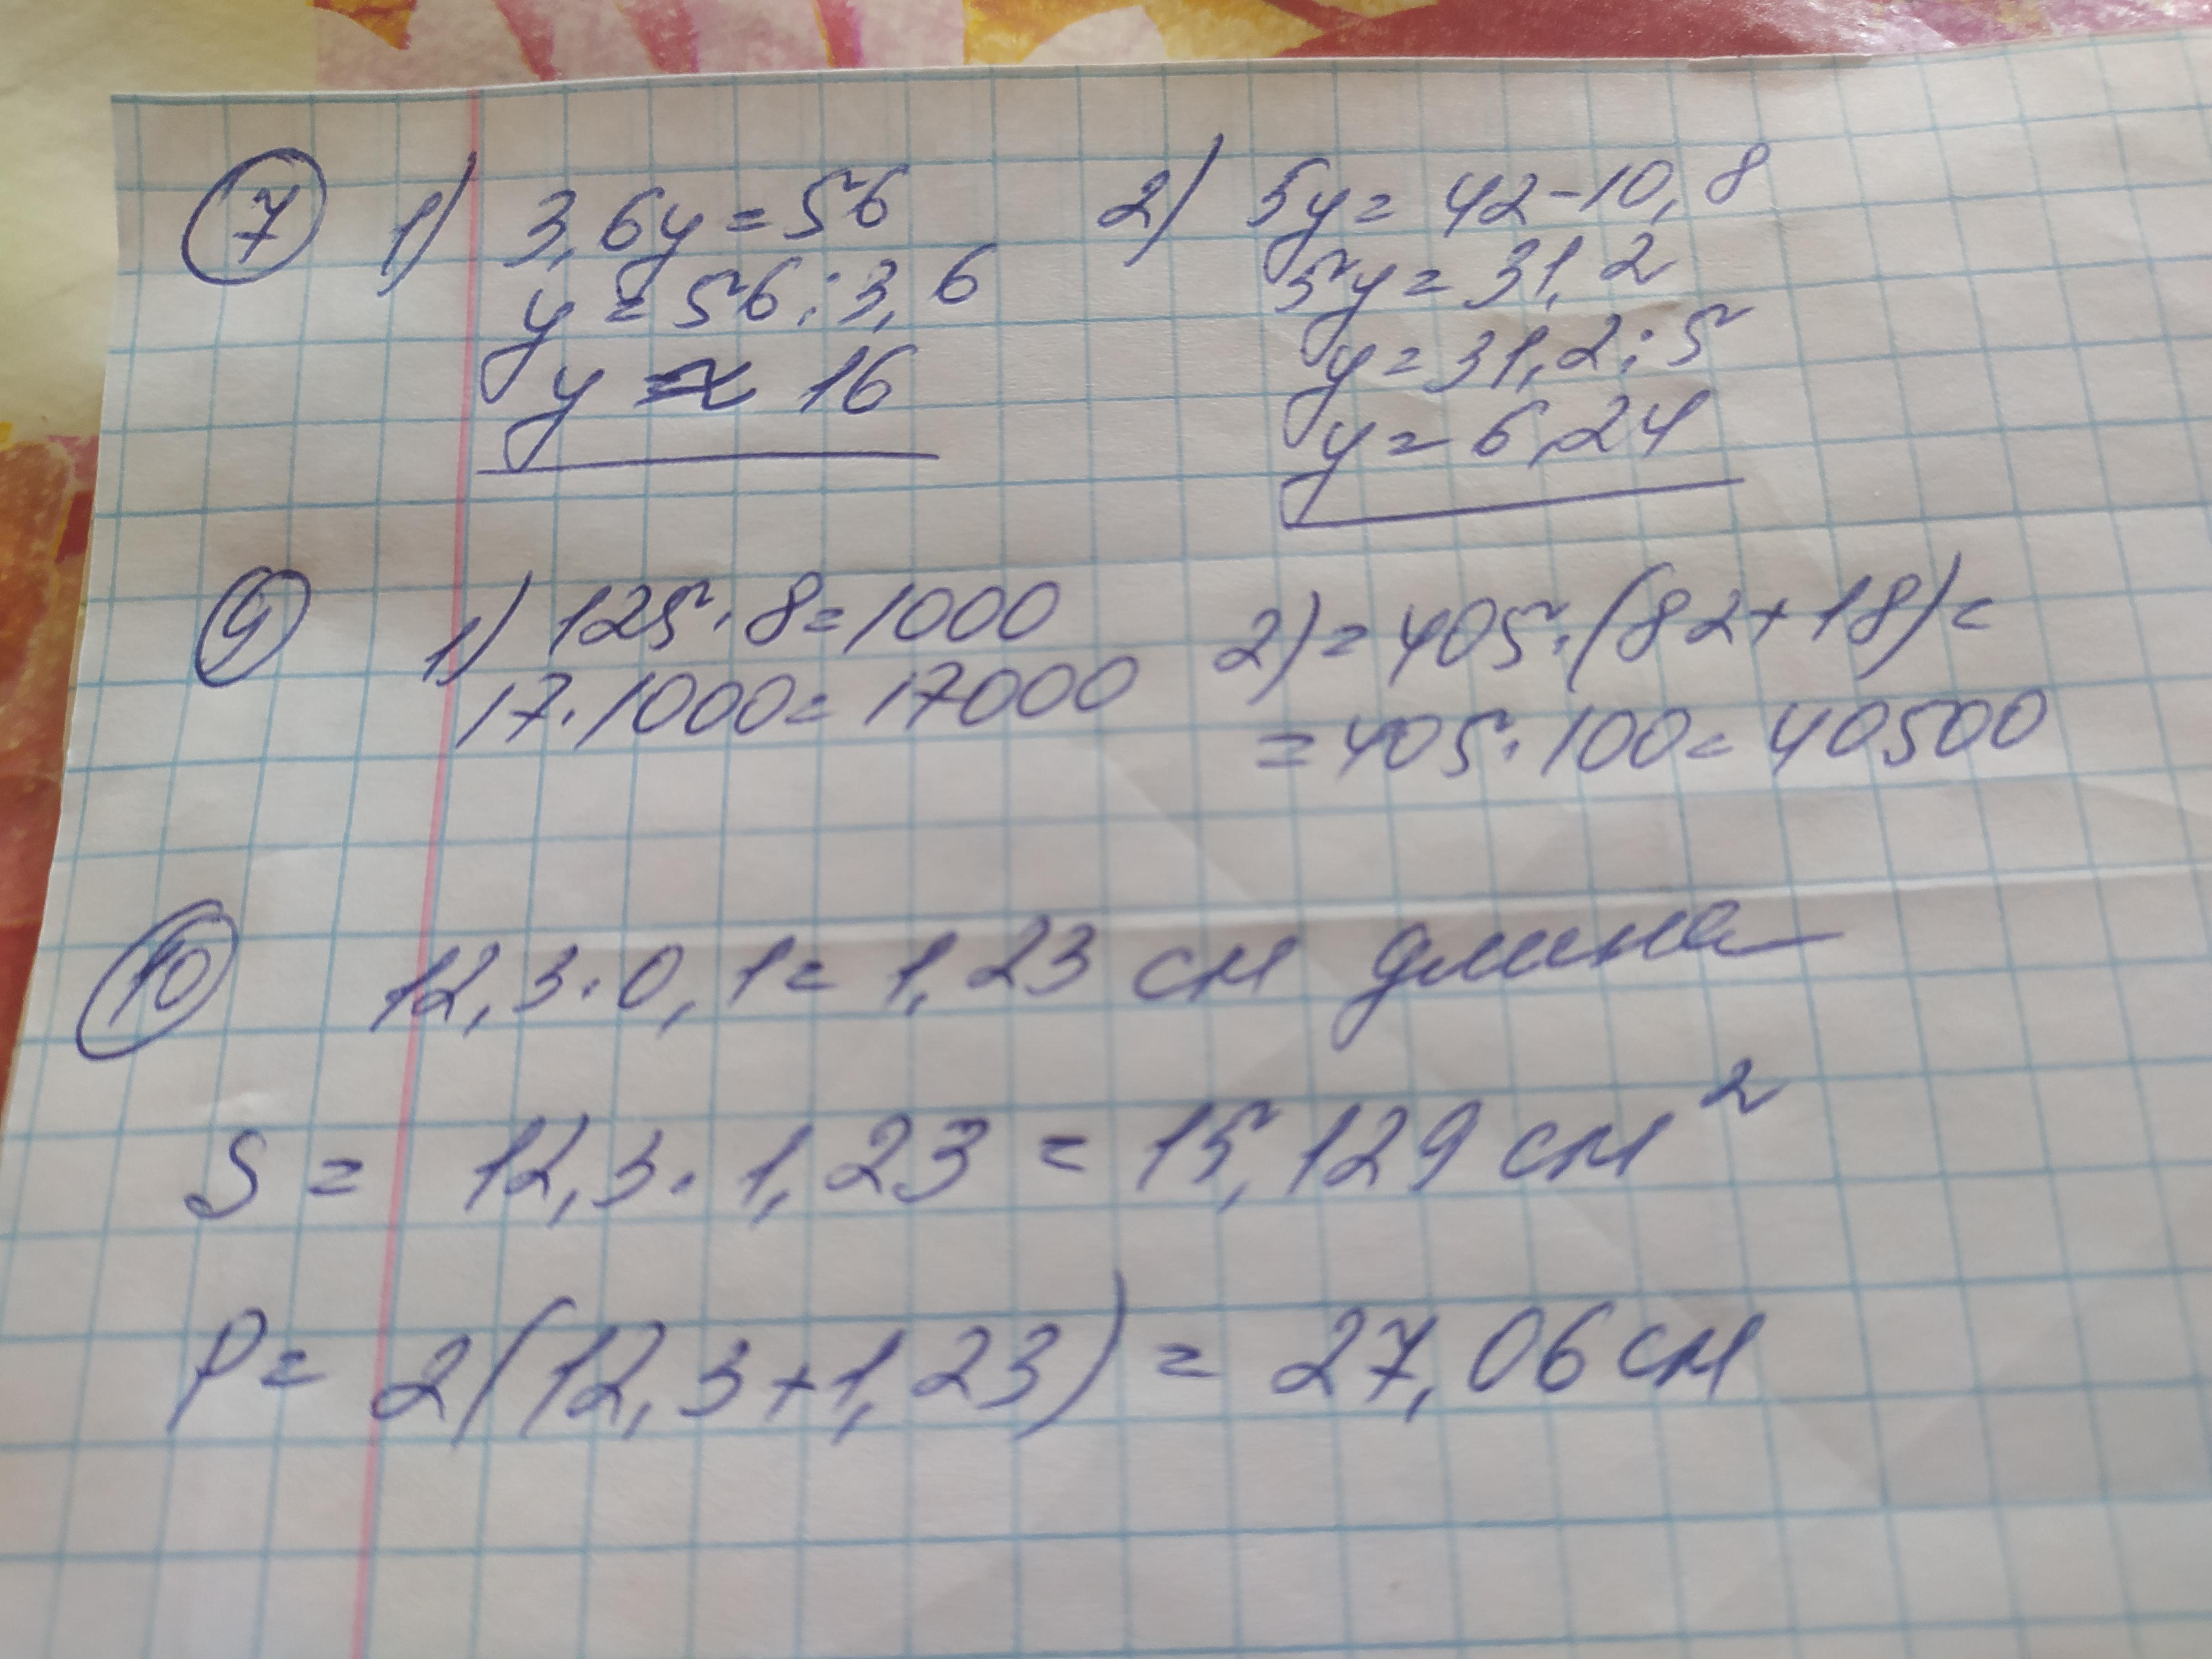 7 1) 3,6y=56
y=56:3,6
y≈16
2) 5y=42-10,8
5y=31,2
y=31,2:5
y=6,24
9 1) 125·8=1000
17·1000=17000
2)=405·(82+18)=
=405·100=40500
10 12,3·0,1=1,23 см длина
S= 12,3·1,23=15,129 см²
P= 2(12,3+1,23)=27,06 см